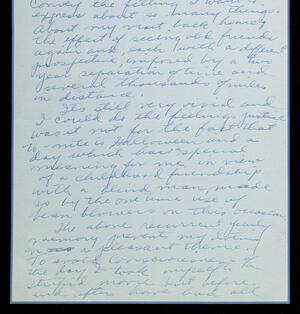 Convey the feeling I want to
express about so many things.
About my visit back home,
the effect of seeing old friends
again and, each with a different
prospective, imposed by a two
year separation of time and
several thousands of miles
in distance.
It's still very vivid and
I could do the feelings justice
was it not for the fact that
to-nite is Halloween and a
day which has especial
meaning for me in view
of a childhood friendship
with a blind man, made
so by the one time use of
bean blowers on this occasion.
The above recurrent yearly
memory prevents my doing
a pleasant theme.
To avoid consciousness of
the day, I took myself to a
stupid movie but before
and after have had all